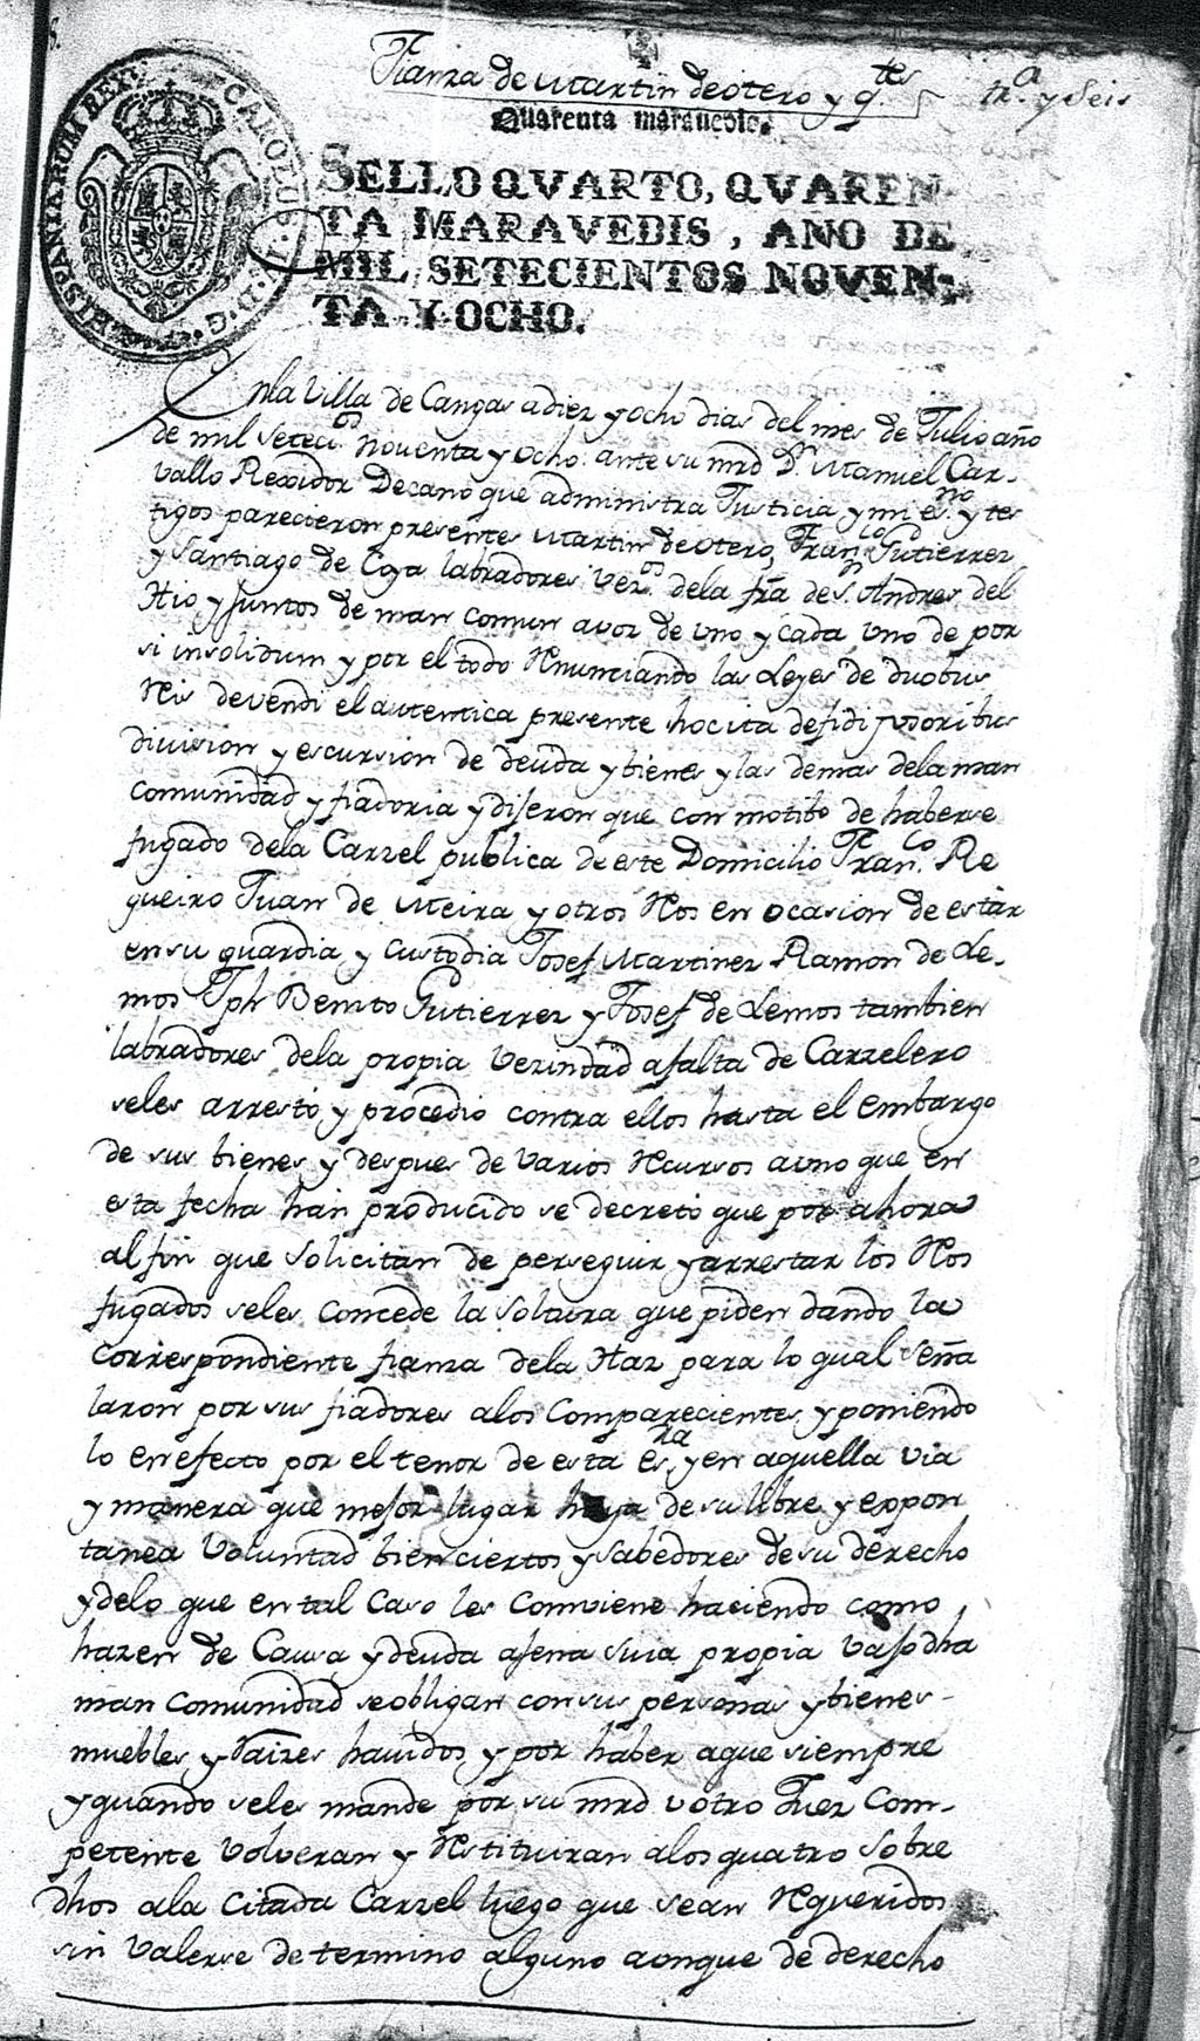 Fianza de Martin de otero y q.tes
tr.a y Seis
Quarenta maravedis.
SELLO QVARTO, QVAREN-
TA MARAVEDIS, AÑO DE
MIL SETECIENTOS NOVEN-
TA Y OCHO.
CAROLUS IV D. G. HISPANIARUM REX
Enla Villa de Cangas adiez y ocho dias del mes de Julio año
de mil seteci.os noventa y ocho. ante su mrd D.n Manuel Car-
vallo Rexidor Decano que administra Justicia y mi es.no y tes
tigos parecieron presentes Martin de otero, Fran.co Gutierrez
y Santiago de Coya labradores vez.os dela fra de S.n Andres del
Hio, y juntos de man comun avoz de uno y cada uno de por
si insolidum y por el todo Renunciando las Leyes de duobus
Reis devendi el autentica presente hocita defidi jusoribus
division y escursion de deuda y bienes y las demas dela man
comunidad y fiadoria y dijeron que con motibo de haberse
fugado dela Carzel publica de este Domicilio Fran.co Re
gueiro Juan de Meira y otros Reos en ocasion de estar
en su guardia y custodia Josef Martinez Ramon de Le-
mos Jph Benito Gutierrez y Josef de Lemos tambien
labradores dela propia vezindad afalta de Carzelero
seles arrestó y procedio contra ellos hasta el embargo
de sus bienes y despues de varios Recursos auno que en
esta fecha han producido se decretó que por ahora
al fin que solicitan de perseguir y arrestar los Reos
fugados seles concede la soltura que piden dando la
correspondiente fianza dela Haz para lo qual seña
laron por sus fiadores alos Comparecientes y poniendo
lo en efecto por el tenor de esta es.ra y en aquella via
y manera que mejor lugar haya de su libre y expon
tanea Voluntad bien ciertos y sabedores de su derecho
y delo que en tal caso les combiene haciendo como
hazen de Causa y deuda ajena suia propia vajo dha
man comunidad se obligan con sus personas y bienes
muebles y Raizes havidos y por haber a que siempre
y quando seles mande por su mrd u otro Juez Com-
petente Volveran y Restituiran alos quatro sobre
dhos ala citada Carzel luego que sean Requeridos
sin valerse de termino alguno aonque de derecho